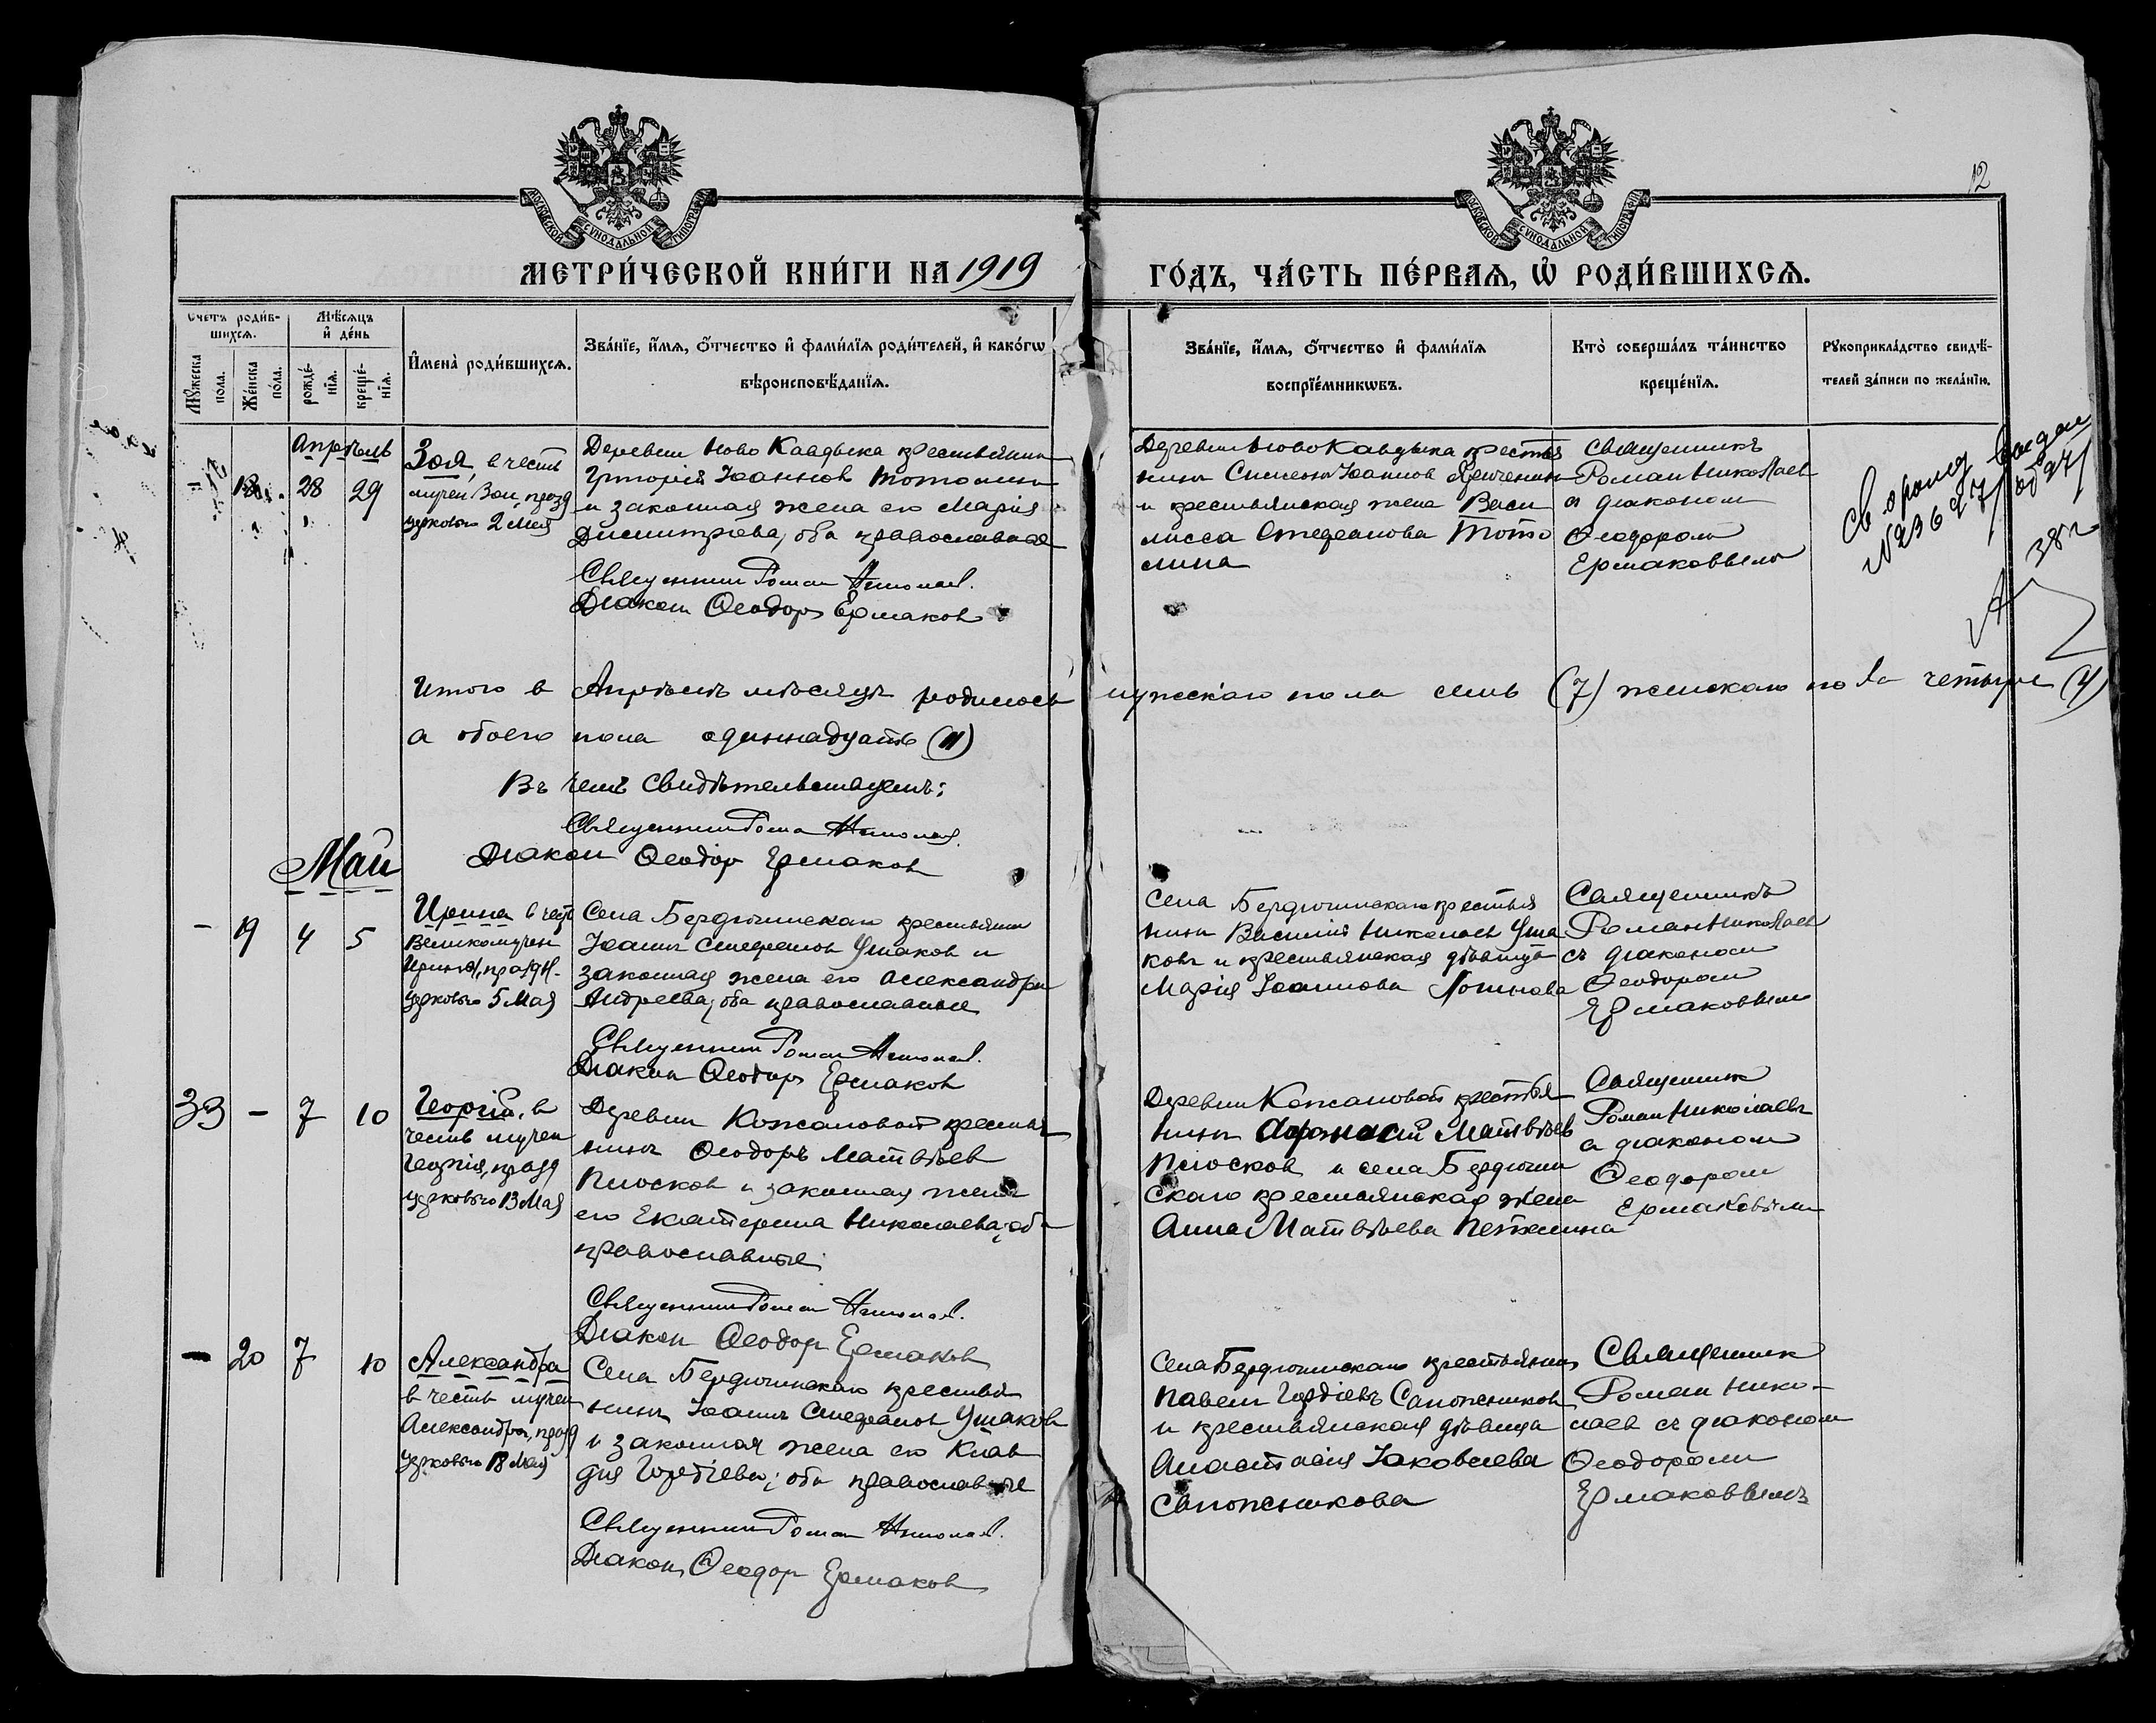 12
МОСКОВСКОЙ СУНОДАЛЬНОЙ ТИПОГРАФІИ
МОСКОВСКОЙ СУНОДАЛЬНОЙ ТИПОГРАФІИ
МЕТРИ́ЧЕСКОЙ КНИ́ГИ НА 1919 ГО́ДЪ, ЧА́СТЬ ПЕ́РВАѦ, Ѡ҆ РОДИ́ВШИХСѦ.
Счетъ роди́в-
шихсѧ.
Мꙋ́жеска пола.
Же́нска по́ла.
Мѣ́сѧцъ
и҆ де́нь
рожде́-
нїѧ.
креще́-
нїѧ.
И҆мена̀ роди́вшихсѧ.
Зва́нїе, и҆́мѧ, ѻ҆́тчество и҆ фами́лїѧ роди́телей, и҆ како́гѡ
вѣроисповѣ́данїѧ.
Зва́нїе, и҆́мѧ, ѻ҆́тчество и҆ фами́лїѧ
воспрїе́мникѡвъ.
Кто̀ соверша́лъ та́инство
креще́нїѧ.
Рꙋкоприкла́дство свидѣ́-
телей за́писи по жела́нїю.
Апрѣль
18 28 29
Зоя, в честь
мучен. Зои, празд
церковью 2 Мая
Деревни Ново Кавдыка крестьянин
Григорій Іоаннов Тотолин
и законная жена его Марія
Димитріева, оба православные
Священник Роман Николаев.
Діакон Ѳеодор Ермаков
Деревни Ново Кавдыка крестья
нин Симеон Іоаннов
и крестьянская жена Васи
лисса Стефанова Тото
лина
Священникъ
Роман Николаев
с діаконом
Ѳеодором
Ермаковым
№ 236
38 г
Итого в Апрѣлѣ мѣсяцѣ родилось мужскаго пола семь (7) женскаго пола четыре (4)
а обоего пола одиннадцать (11)
Въ чемъ свидѣтельствуемъ:
Священник Роман Николаев
Діакон Ѳеодор Ермаков
Май
- 19 4 5
Ирина в честь
Великомучен
Ирины, праздн.
церковью 5 Мая
Села Бердюгинскаго крестьянин
Іоанн Стефанов Ушаков и
законная жена его Александра
Андреева, оба православные
Священник Роман Николаев.
Діакон Ѳеодор Ермаков
Села Бердюгинскаго крестья
нин Василій Николаев Уша
ковъ и крестьянская дѣвица
Марія Іоаннова Логинова
Священникъ
Роман Николаев
съ діаконом
Ѳеодором
Ермаковым
33 - 7 10
Георгій, в
честь мучен
Георгія, празд
церковью 13 Мая
Деревни Кожановой крестья
нинъ Ѳеодоръ Матвѣев
Плосков и законная жена
его Екатерина Николаева, оба
православные
Священник Роман Николаев.
Діакон Ѳеодор Ермаков
Деревни Кожановой крестья
нин Афанасій Матвѣев
Плосков и села Бердюгин
скаго крестьянская жена
Анна Матвѣева Петелина
Священник
Роман Николаевъ
с діаконом
Ѳеодором
Ермаковым
- 20 7 10
Александра
в честь мучен
Александры, празд
церковью 18 Мая
Села Бердюгинскаго крестья
нинъ Іоаннъ Стефанов Ушаков
и законная жена его Клав
дія Гордіева; оба православные
Священник Роман Николаев.
Діакон Ѳеодор Ермаков
Села Бердюгинскаго крестьянин
Павел Гордіевъ Сапожников
и крестьянская дѣвица
Анастасія Іаковлева
Сапожникова
Священник
Роман Нико-
лаев съ діаконом
Ѳеодором
Ермаковымъ